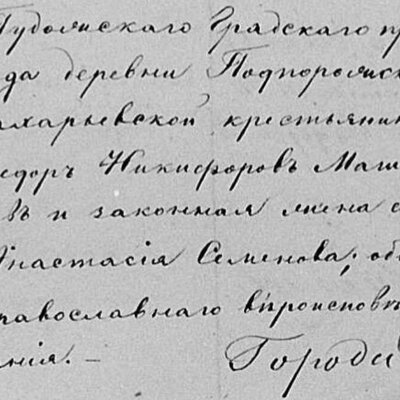 Пудожскаго Градскаго пр
да деревни Подпорожск
ахарьевской крестьянин
едоръ Никифоровъ Маш
въ и законная жена е
Анастасія Семенова; об
православнаго вѣроисповѣ
нія. —
Городи